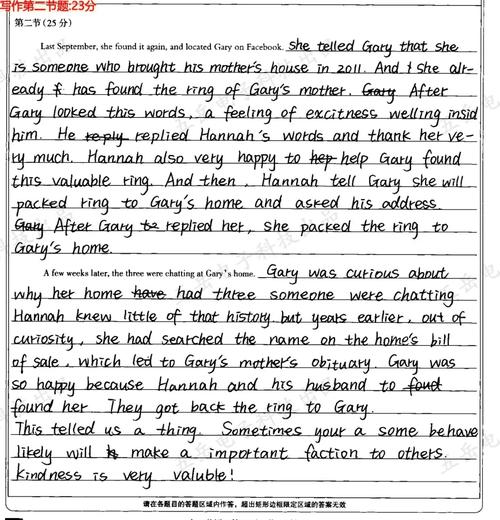 写作第二节题:23分
第二节(25分)
Last September, she found it again, and located Gary on Facebook. She telled Gary that she
is someone who brought his mother's house in 2011. And I She alr-
eady f has found the ring of Gary's mother. Gary After
Gary looked this words, a feeling of excitness welling insid
him. He reply replied Hannah's words and thank her ve-
ry much. Hannah also very happy to hep help Gary found
this valuable ring. And then, Hannah tell Gary she will
packed ring to Gary's home and asked his address.
Gary After Gary to replied her, she packed the ring to
Gary's home.
A few weeks later, the three were chatting at Gary's home. Gary was curious about
why her home have had three someone were chatting
Hannah knew little of that history but years earlier, out of
curiosity, she had searched the name on the home's bill
of sale, which led to Gary's mother's obituary. Gary was
so happy because Hannah and his husband to foud
found her. They got back the ring to Gary.
This telled us a thing. Sometimes your a some behave
likely will is make a important faction to others.
Kindness is very valuble!
请在各题目的答题区域内作答，超出矩形边框限定区域的答案无效